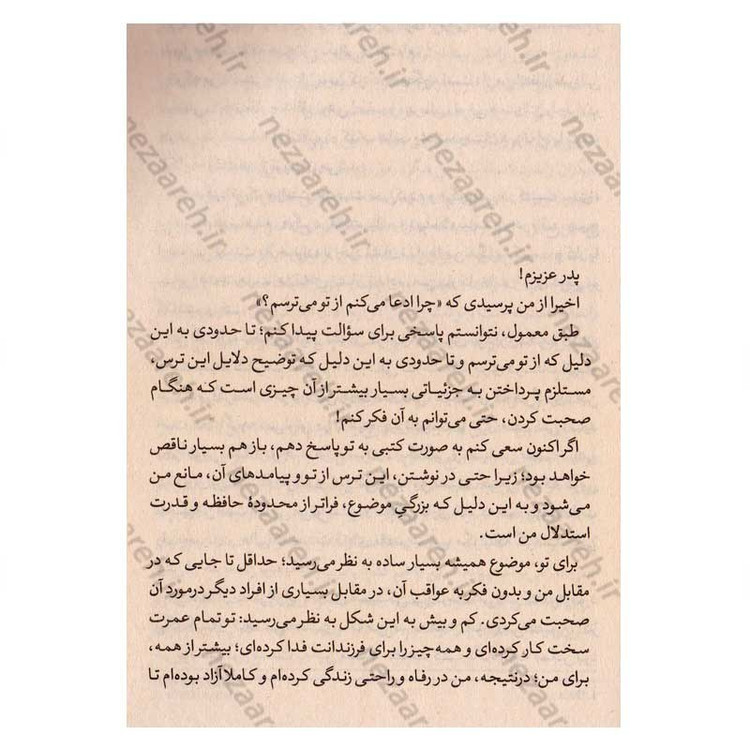 پدر عزیزم!
اخیرا از من پرسیدی که «چرا ادعا می‌کنم از تو می‌ترسم؟»
طبق معمول، نتوانستم پاسخی برای سؤالت پیدا کنم؛ تا حدودی به این
دلیل که از تو می‌ترسم و تا حدودی به این دلیل که توضیح دلایل این ترس،
مستلزم پرداختن به جزئیاتی بسیار بیشتر از آن چیزی است که هنگام
صحبت کردن، حتی می‌توانم به آن فکر کنم!
اگر اکنون سعی کنم به صورت کتبی به تو پاسخ دهم، باز هم بسیار ناقص
خواهد بود؛ زیرا حتی در نوشتن، این ترس از تو و پیامدهای آن، مانع من
می‌شود و به این دلیل که بزرگیِ موضوع، فراتر از محدودهٔ حافظه و قدرت
استدلال من است.
برای تو، موضوع همیشه بسیار ساده به نظر می‌رسید؛ حداقل تا جایی که در
مقابل من و بدون فکر به عواقب آن، در مقابل بسیاری از افراد دیگر درمورد آن
صحبت می‌کردی. کم و بیش به این شکل به نظر می‌رسید: تو تمام عمرت
سخت کار کرده‌ای و همه چیز را برای فرزندانت فدا کرده‌ای؛ بیشتر از همه،
برای من؛ درنتیجه، من در رفاه و راحتی زندگی کرده‌ام و کاملا آزاد بوده‌ام تا
nezaareh.ir
nezaareh.ir
nezaareh.ir
nezaareh.ir
nezaareh.ir
nezaareh.ir